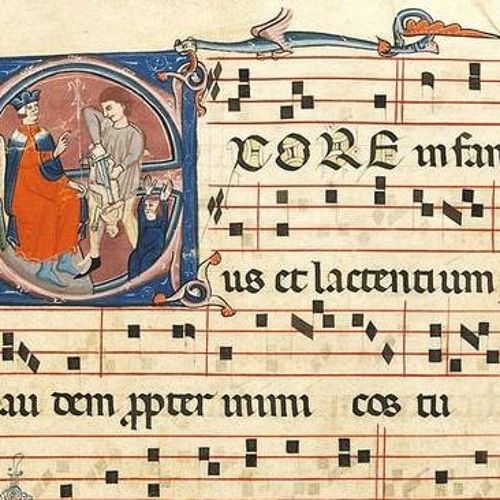 EX ORE infan
us et lactentium
au dem ppter inimi cos tu